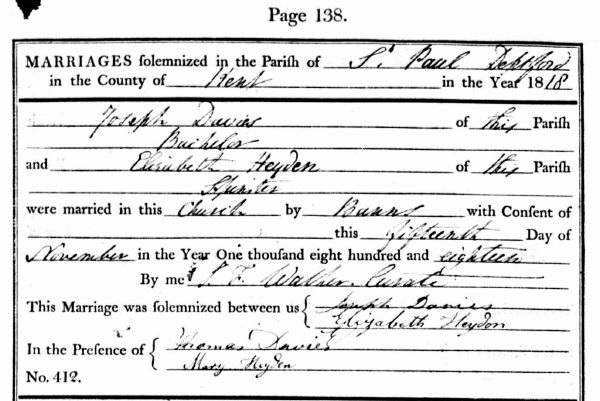 Page 138.
MARRIAGES solemnized in the Parish of St Paul Deptford
in the County of Kent in the Year 1818
Joseph Davies of this Parish
Bachelor
and Elizabeth Heyden of this Parish
Spinster
were married in this Church by Banns with Consent of
this fifteenth Day of
November in the Year One thousand eight hundred and eighteen
By me Walker Curate
This Marriage was solemnized between us { Joseph Davies
Elizabeth Heydon
In the Presence of { Thomas Davies
Mary Heyden
No. 412.